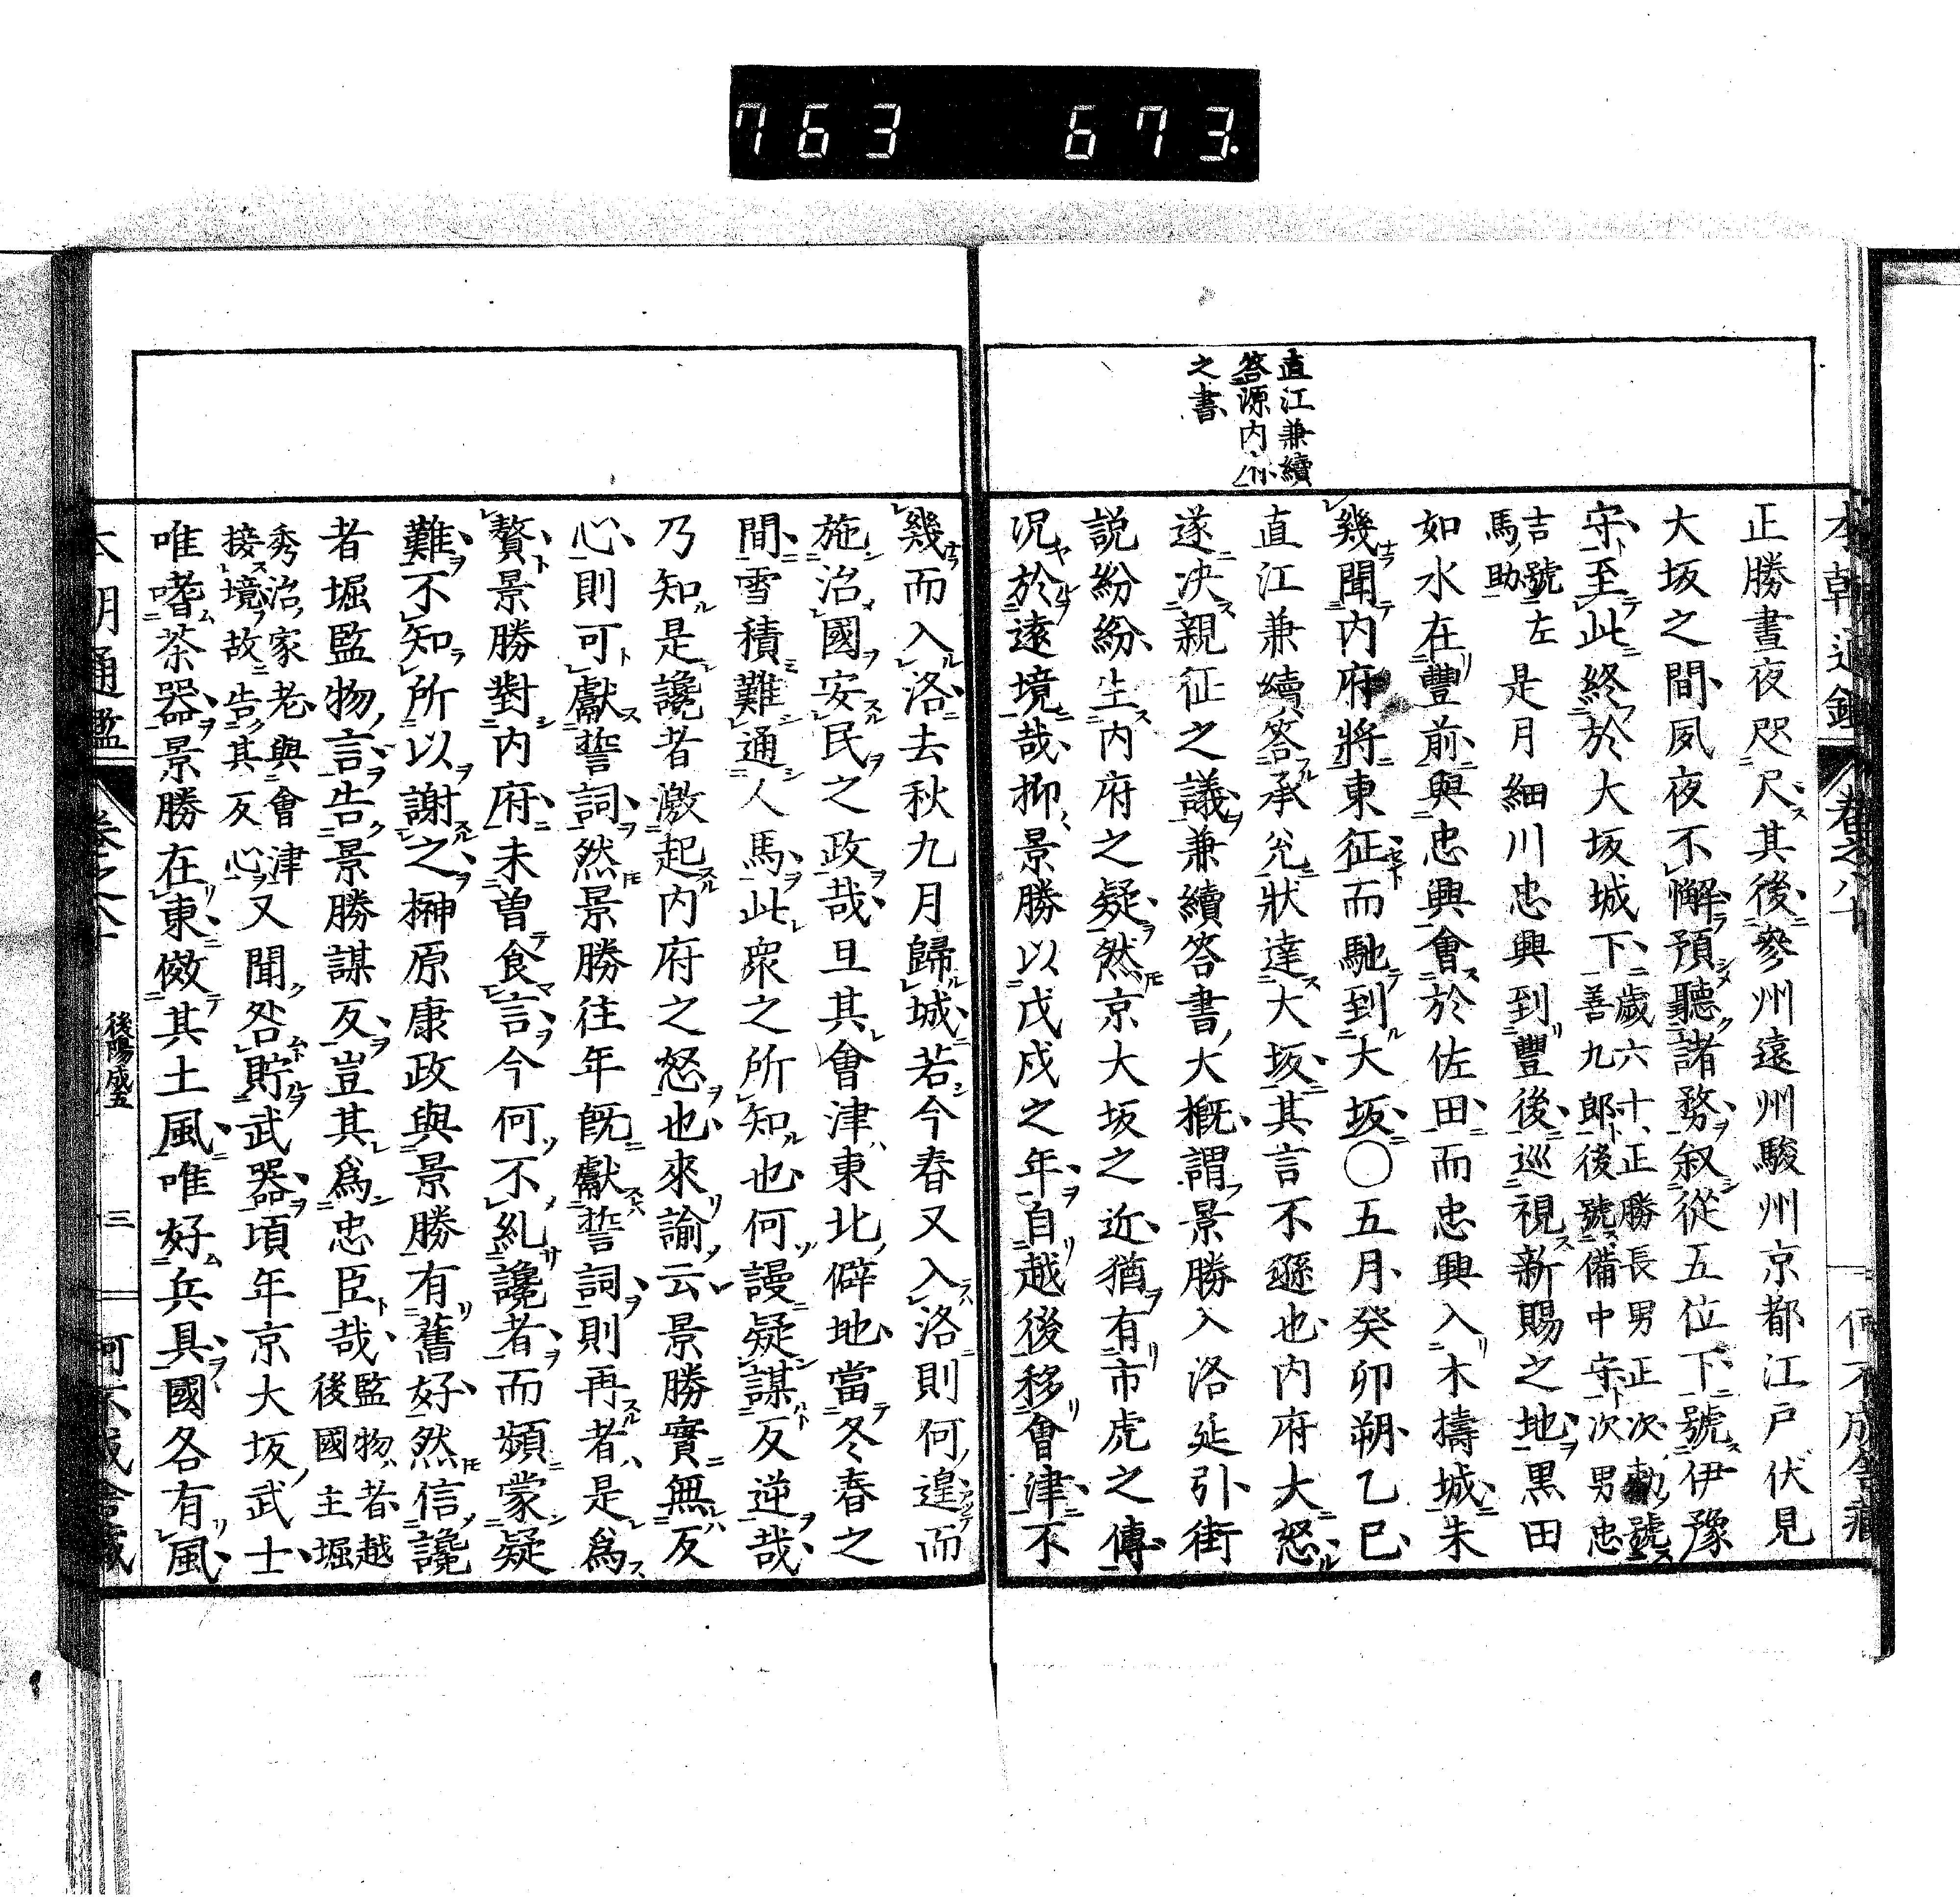 763 673.
本朝通鑑 卷之八十
直江兼續
答源内府
之書
正勝晝夜咫尺其後參州遠州駿州京都江戸伏見
大坂之間夙夜不懈預聽諸務叙從五位下號伊豫
守至此終於大坂城下歲六十正勝長男正次號
善九郎後號備中守次男忠
吉號左
馬助
是月細川忠興到豐後巡視新賜之地黒田
如水在豐前與忠興會於佐田而忠興入木擣城未
幾聞内府將東征而馳到大坂〇五月癸卯朔乙巳
直江兼續答承兊狀達大坂其言不遜也内府大怒
遂决親征之議兼續答書大概謂景勝入洛延引街
説紛紛生内府之疑然京大坂之近猶有市虎之傳
况於遠境哉抑景勝以戊戌之年自越後移會津不
幾而入洛去秋九月歸城若今春又入洛則何遑而
施治國安民之政哉且其會津東北僻地當冬春之
間雪積難通人馬此衆之所知也何謾疑謀反逆哉
乃知是讒者激起内府之怒也來諭云景勝實無反
心則可獻誓詞然景勝往年既獻誓詞則再者是爲
贅景勝對内府未曽食言今何不糺讒者而頻蒙疑
難不知所以謝之榊原康政與景勝有舊好然信讒
者堀監物言告景勝謀反豈其爲忠臣哉
監物者越
後國主堀
秀治家老與會津
接境故告其反心
又聞咎貯武器頃年京大坂武士
唯嗜茶器景勝在東傚其土風唯好兵具國各有風
本朝通鑑 後陽成五 三